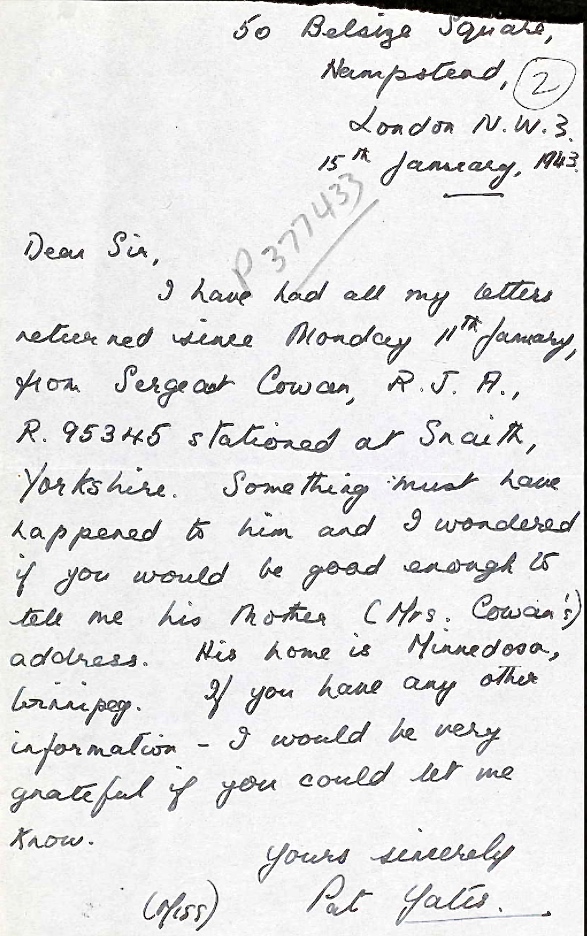 50 Belsize Square,
Hampstead,
2
London N.W.3.
15th January, 1943.
P377433
Dear Sir,
I have had all my letters
returned since Monday 11th January,
from Sergeant Cowan, R. J. A.,
R. 95345 stationed at Snaith,
Yorkshire. Something must have
happened to him and I wondered
if you would be good enough to
tell me his Mother (Mrs. Cowan's)
address. His home is Minnedosa,
Winnipeg. If you have any other
information - I would be very
grateful if you could let me
know.
Yours sincerely
(Miss) Pat Yates.